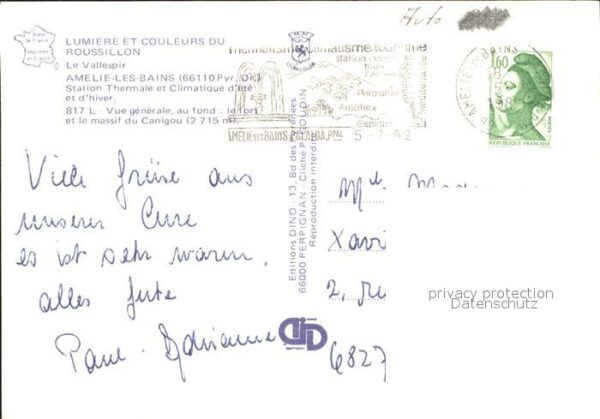 Auto
LUMIERE ET COULEURS DU
ROUSSILLON
Le Vallespir
AMELIE-LES-BAINS (66110 Pyr. Or.)
Station Thermale et Climatique d'été
et d'hiver.
817 L - Vue générale, au fond : le fort
et le massif du Canigou (2 715 m)
thermalisme climatisme tourisme
AMELIE LES BAINS PALALDA PPAL
5 - 7 - 82
1,60
REPUBLIQUE FRANÇAISE
Editions DINO - 13, Bd des Pyrénées
66000 PERPIGNAN EX. C. PIGOUDIN
Reproduction interdite
Viele Grüsse aus
unserer Cure
es ist sehr warm,
alles Gute
Paul - Adrianne
Xavi
2, rue
6827
privacy protection
Datenschutz